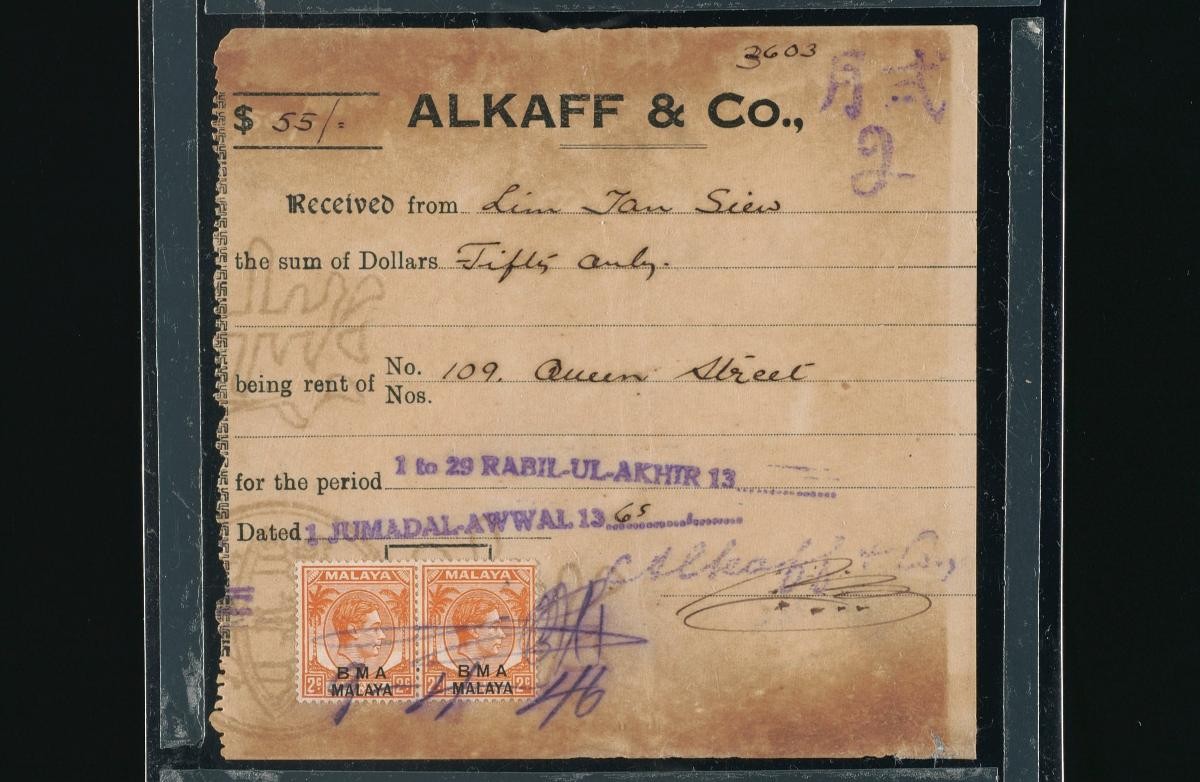 3603
$ 55/-
ALKAFF & Co.,
月 弍
2
Received from Lim Tan Siew
the sum of Dollars Fifty only.
being rent of No. 109, Queen Street
Nos.
for the period 1 to 29 RABIL-UL-AKHIR 13
Dated 1 JUMADAL-AWWAL 13 65
Alkaff & Co.
MALAYA MALAYA
BMA BMA
MALAYA MALAYA
2c 2c 2c 2c
46